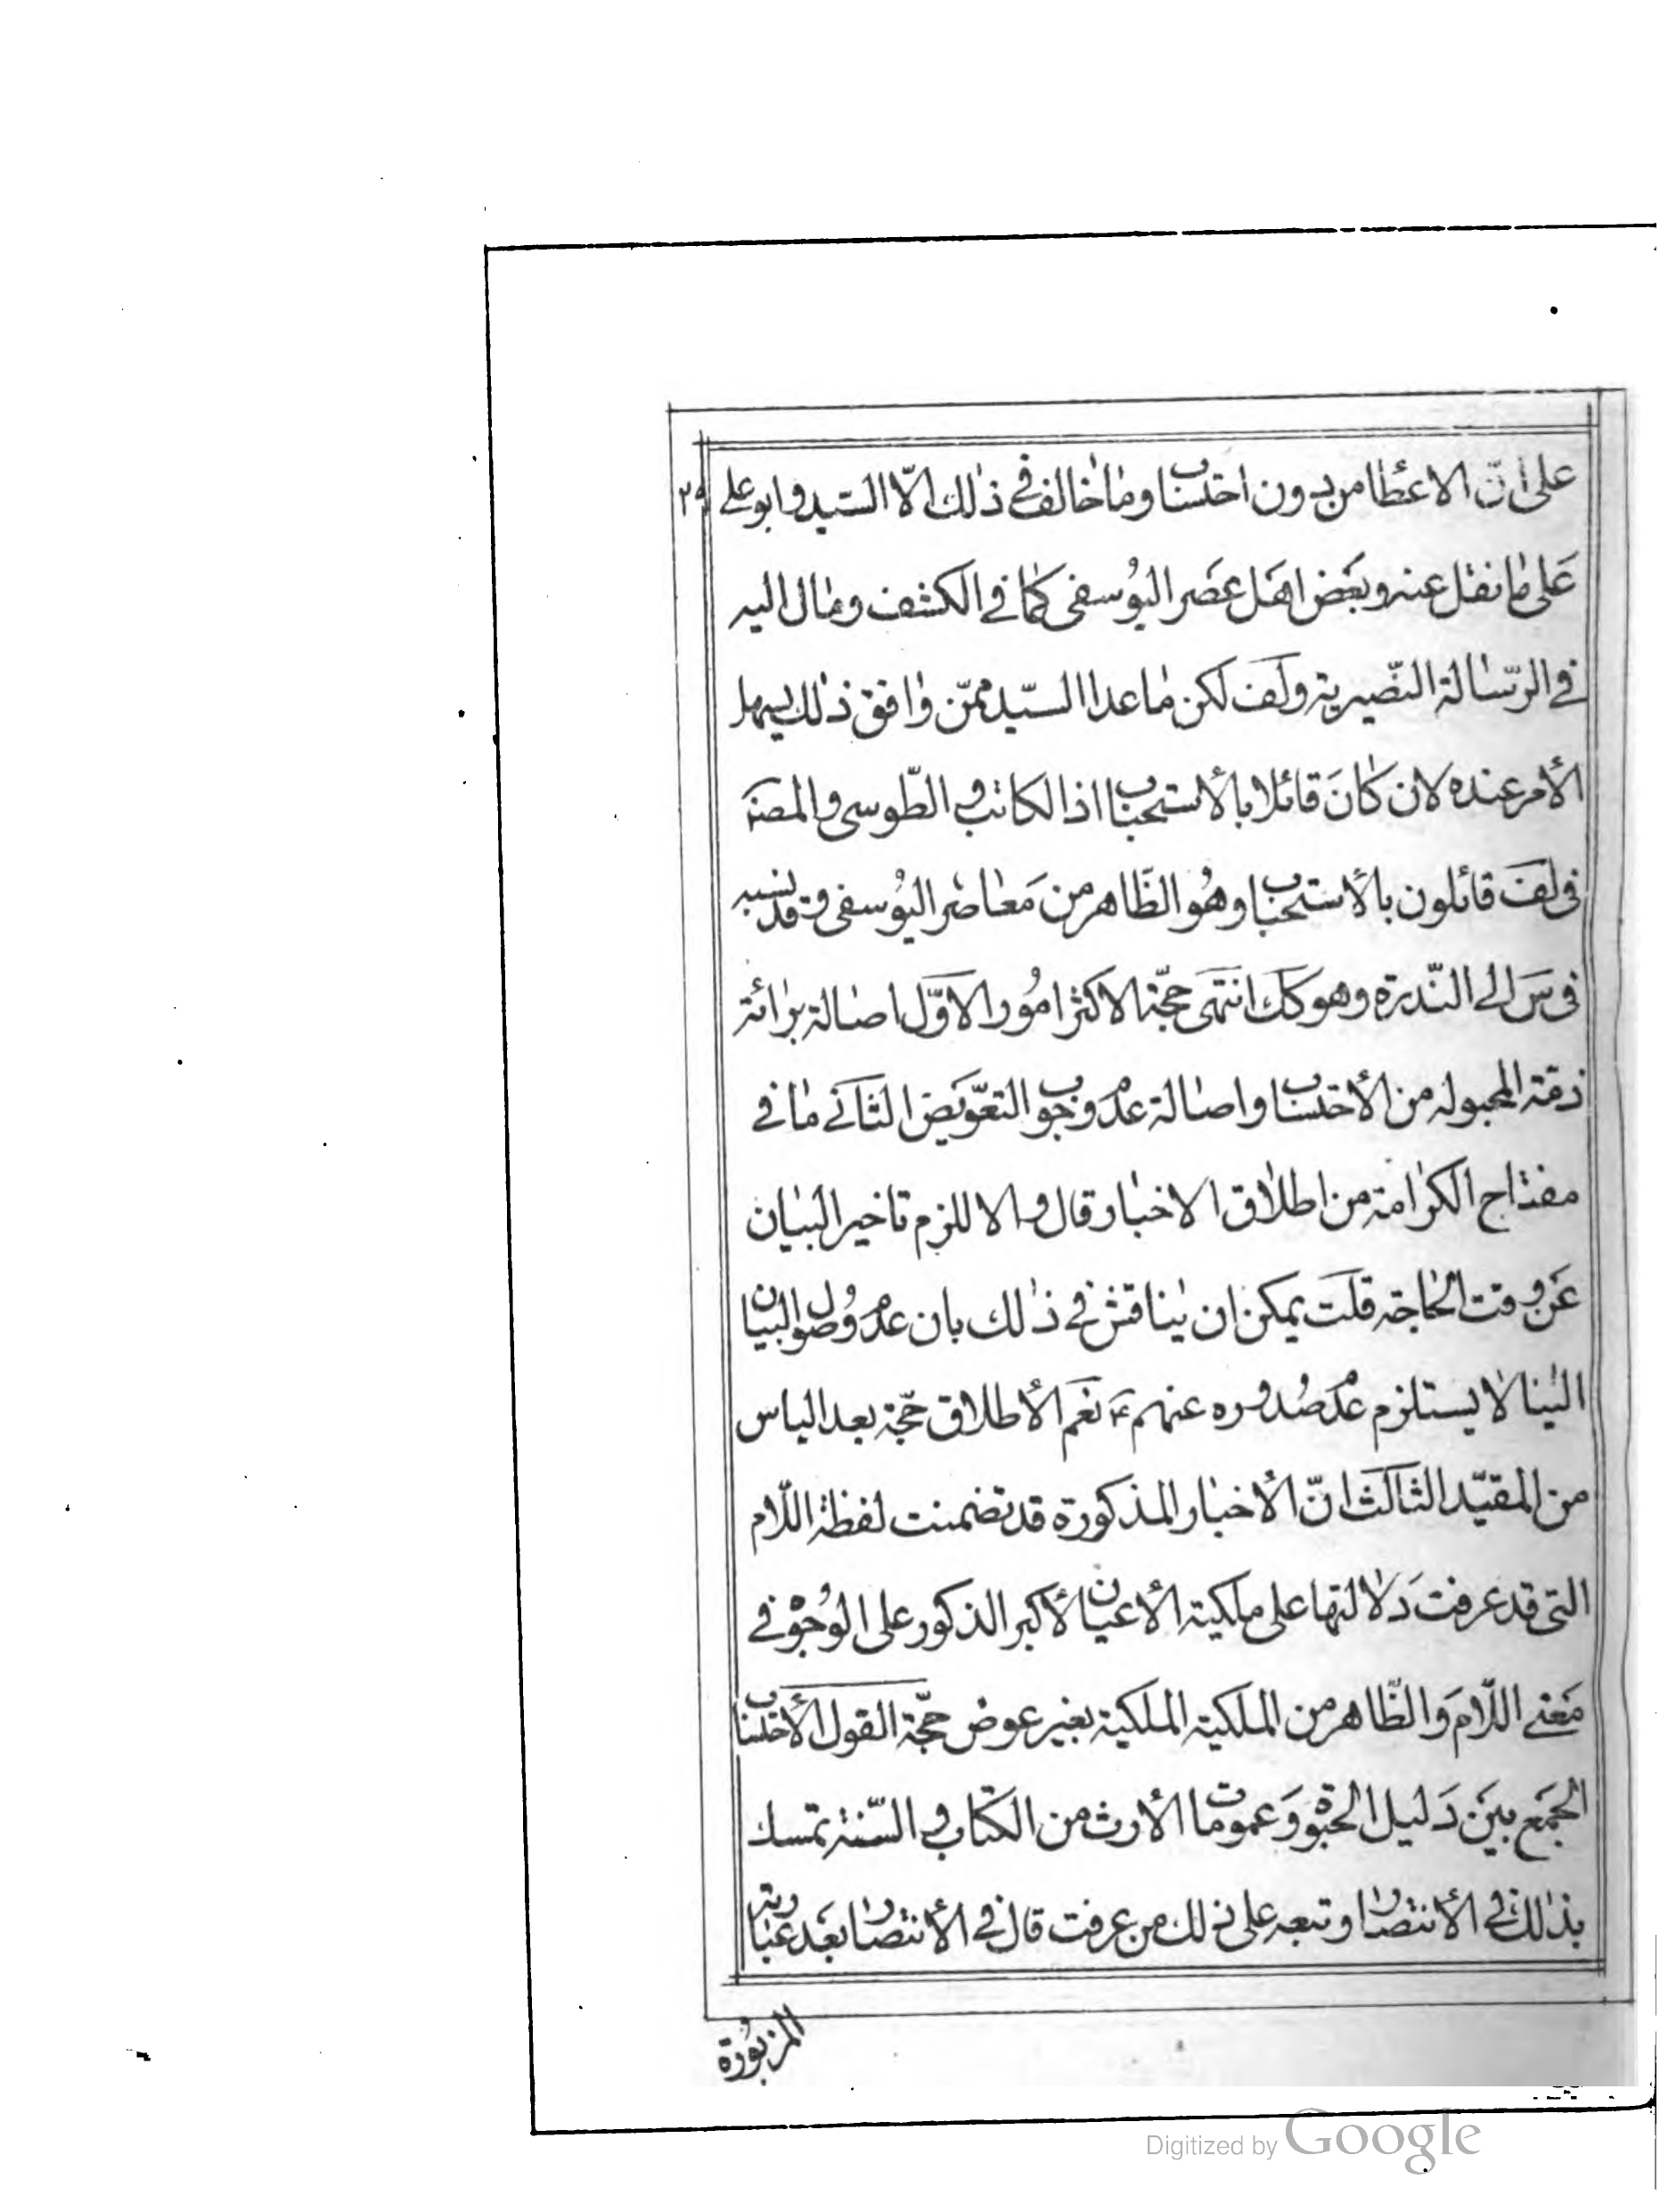 على انّ الاعطا من دون احتساب وما خالف في ذلك الّا السّيد وابو علي ٢٩
على ما نقل عنه وبعض اهل عصر اليوسفي كما في الكشف ومال اليه
في الرّسالة النّصيرية ولف لكن ما عدا السّيد ممّن وافق ذلك يسهل
الأمر عنده لان كان قائلا بالأستحباب اذ الكاتب والطّوسى والمصنف
فى لف قائلون بالأستحباب وهو الظّاهر من معاصر اليوسفى وقد نسبه
فى س الى النّدرة وهو كك انتهى حجّة الاكثر امور الاوّل اصالة برائة
ذمّة المحبو له من الأحتساب واصالة عدم وجوب التعويض الثانى ما فى
مفتاح الكرامة من اطلاق الاخبار قال والا للزم تاخير البيان
عن وقت الحاجة قلت يمكن ان يناقش فى ذلك بان عدم وصول البيان
الينا لا يستلزم عدم صدوره عنهم ع نعم الأطلاق حجّة بعد الياس
من المقيّد الثالث انّ الأخبار المذكورة قد تضمنت لفظة اللّام
التى قد عرفت دلالتها على ملكية الأعيان لأكبر الذكور على الوجوه فى
معنى اللّام والظّاهر من الملكية الملكية بغير عوض حجّة القول الأحتساب
الجمع بين دليل الحبوة وعمومات الأرث من الكتاب والسّنة تمسك
بذلك فى الأنتصار وتبعه على ذلك من عرفت قال فى الأنتصار بعد عبارته
المزبورة
Digitized by Google